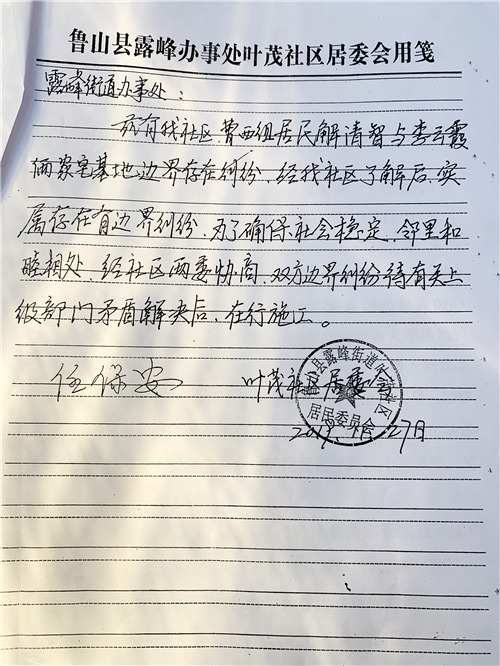 鲁山县露峰办事处叶茂社区居委会用笺
露峰街道办事处：
兹有我社区曹西组居民解清智与李云霞
俩家宅基地边界存在纠纷，经我社区了解后，实
属存在有边界纠纷，为了确保社会稳定，邻里和
睦相处，经社区两委协商，双方边界纠纷待有关上
级部门矛盾解决后，在行施工。
任保安
叶茂社区居委会
鲁山县露峰街道 社区
居民委员会
27日